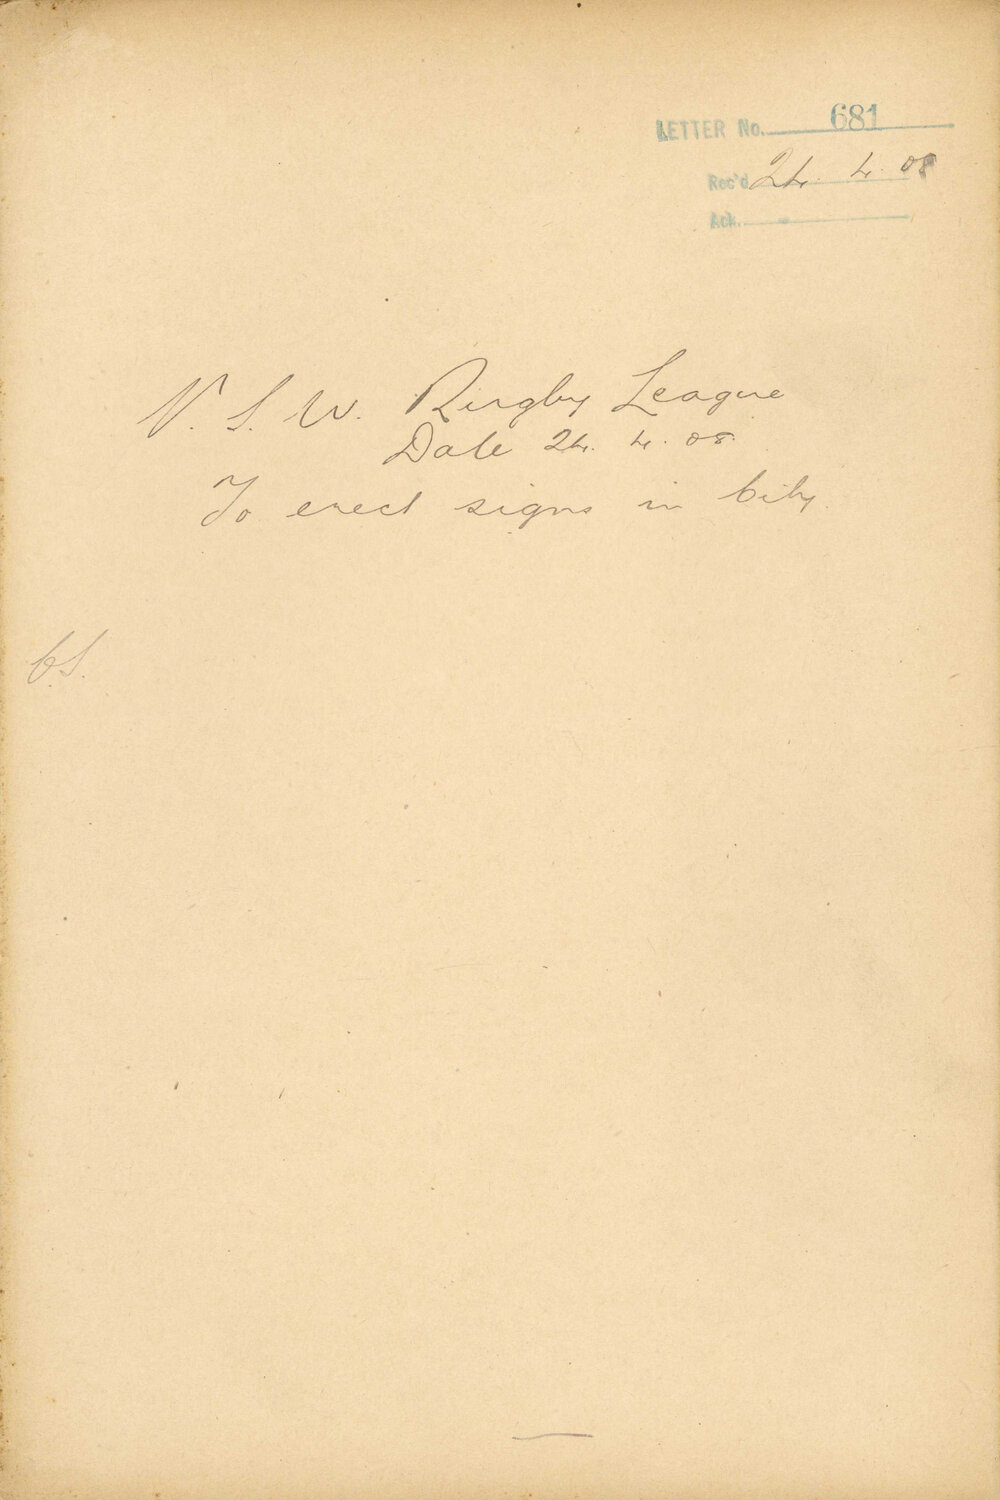 LETTER No. 681
Rec'd 24. 4. 08
Ack.
N. S. W. Rugby League
Date 24. 4. 08.
To erect signs in City.
C.S.